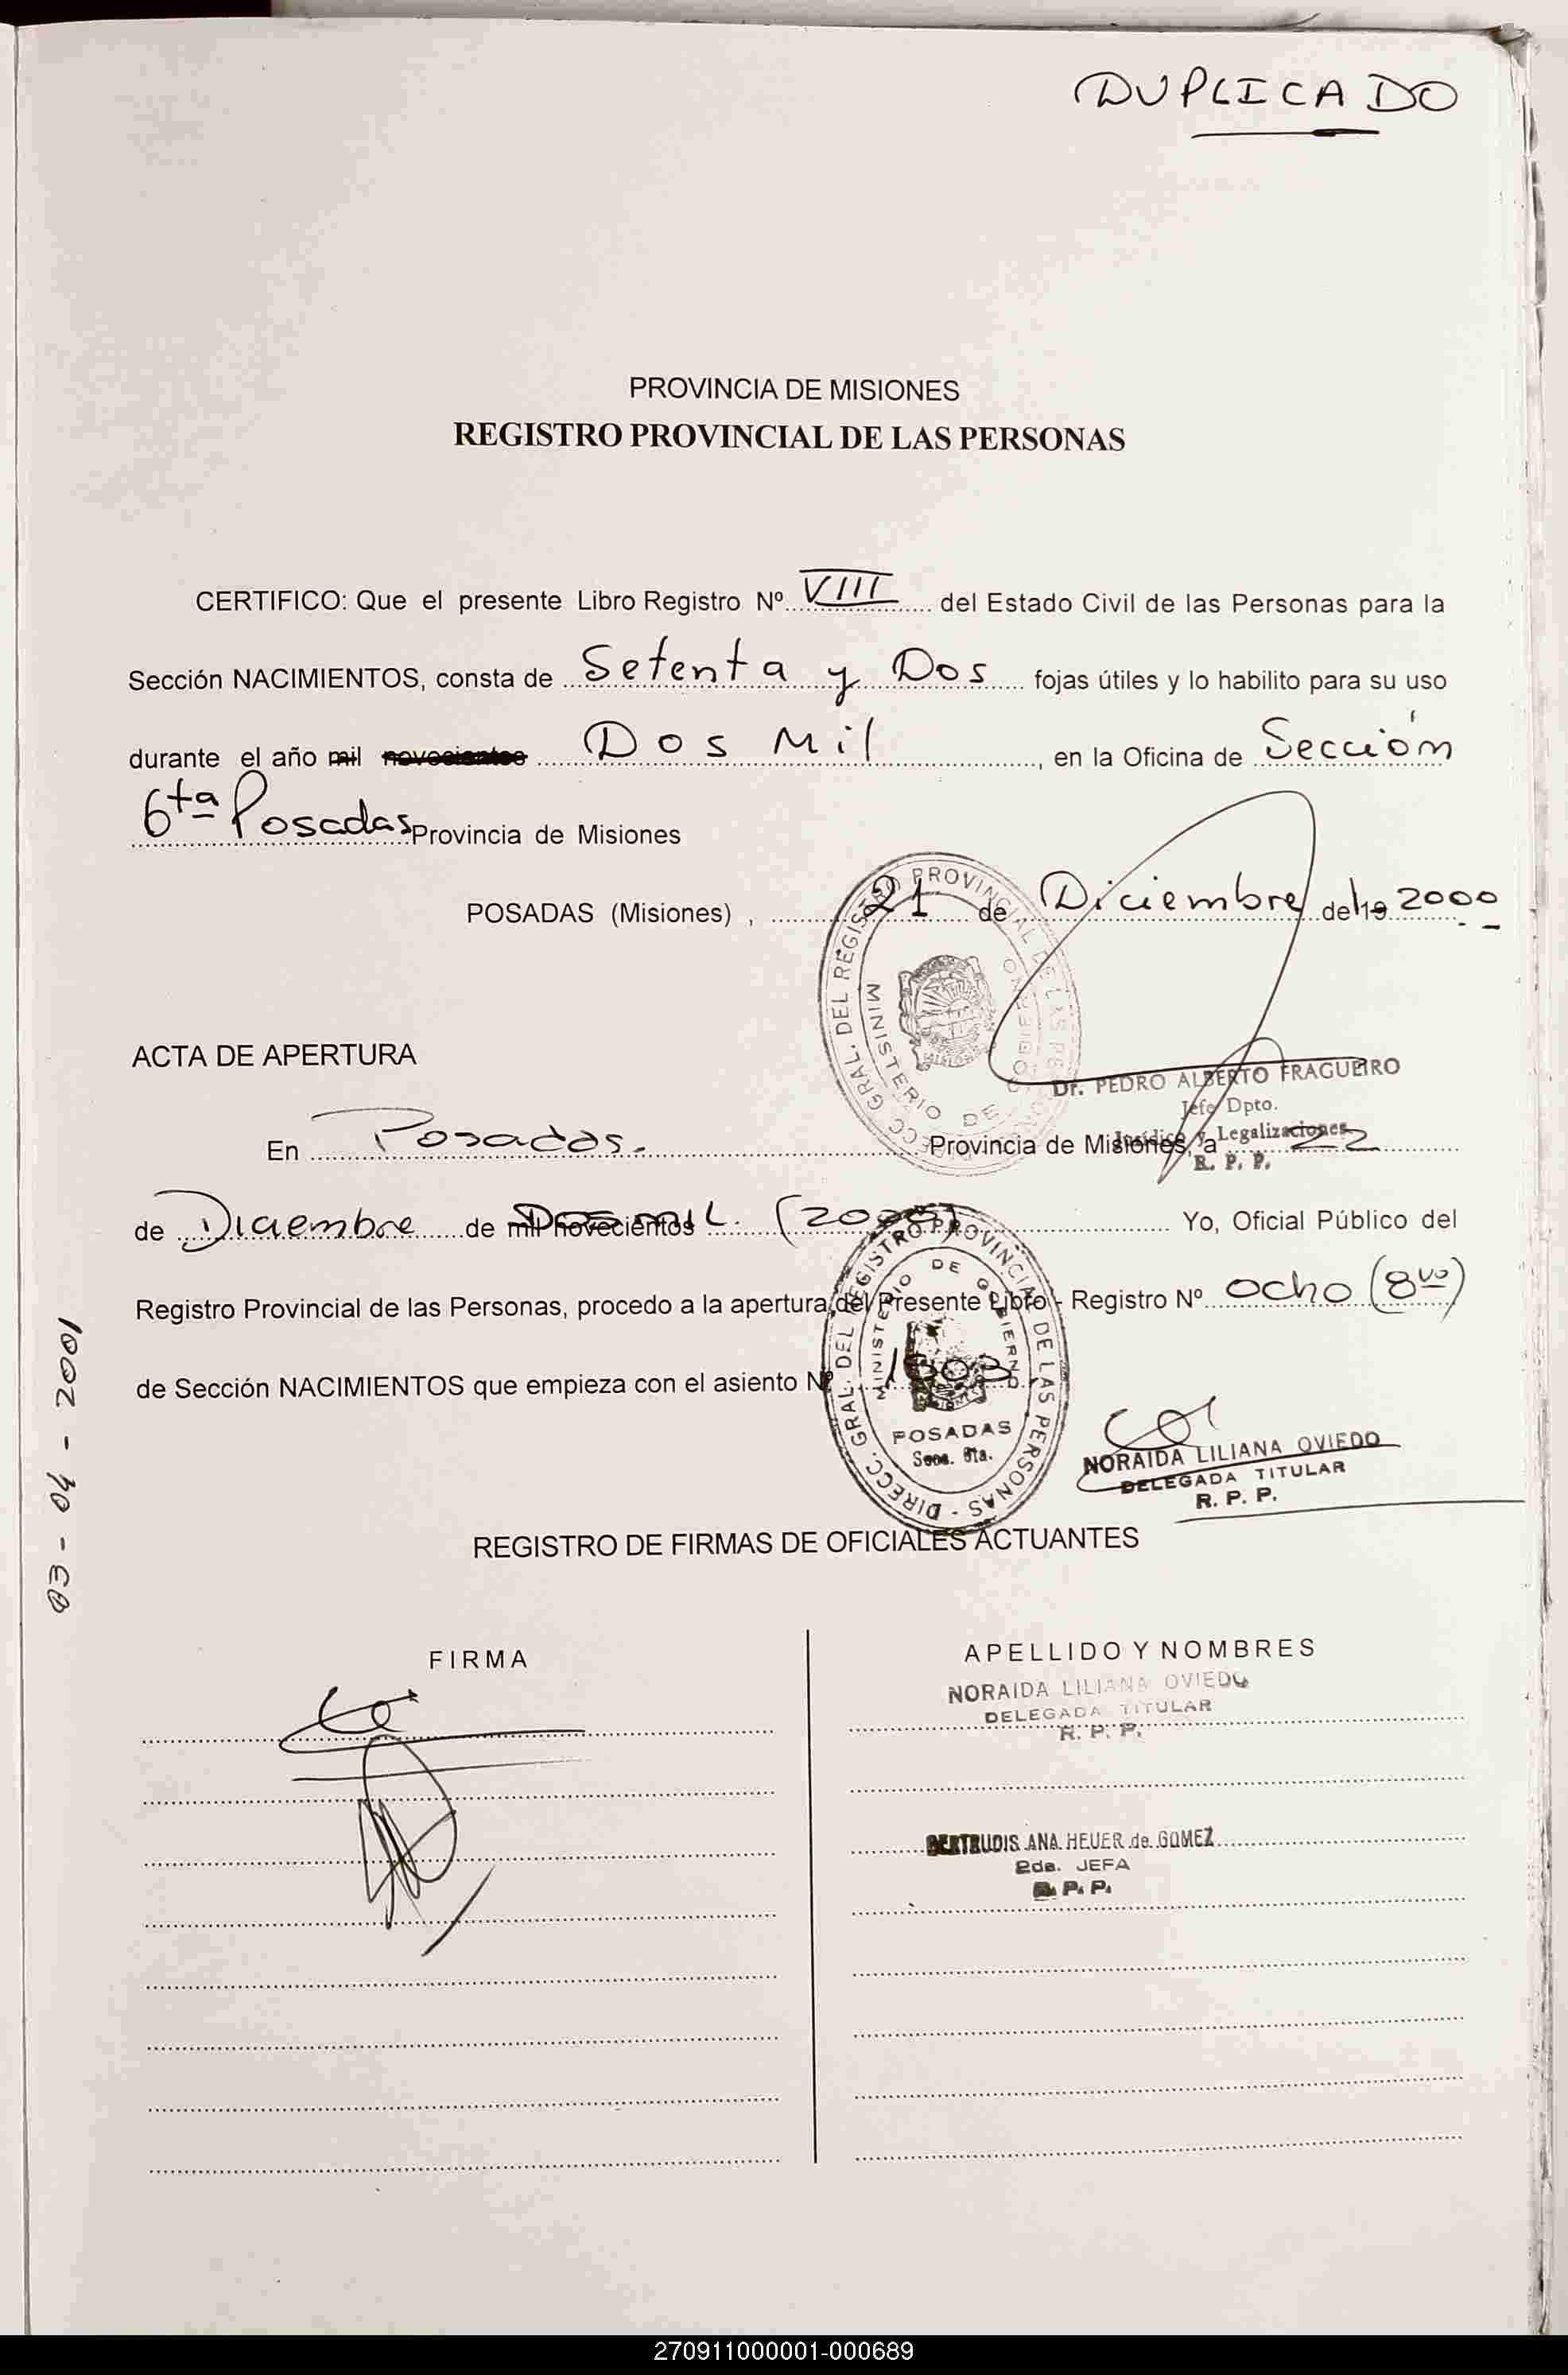 DUPLICADO
PROVINCIA DE MISIONES
REGISTRO PROVINCIAL DE LAS PERSONAS
CERTIFICO: Que el presente Libro Registro Nº VIII del Estado Civil de las Personas para la
Sección NACIMIENTOS, consta de Setenta y Dos fojas útiles y lo habilito para su uso
durante el año mil novecientos Dos Mil, en la Oficina de Sección
6ta Posadas Provincia de Misiones
POSADAS (Misiones), 21 de Diciembre de 19 2000
DIRECC. GRAL. DEL REGISTRO PROVINCIAL DE LAS PERSONAS
MINISTERIO DE GOBIERNO
MISIONES
Dr. PEDRO ALBERTO FRAGUEIRO
Jefe Dpto.
Jurídico y Legalizaciones
R. P. P.
ACTA DE APERTURA
En Posadas. Provincia de Misiones, a 22
de Diciembre de mil novecientos Dos mil. (2000) Yo, Oficial Público del
Registro Provincial de las Personas, procedo a la apertura del Presente Libro - Registro Nº ocho (8vo)
de Sección NACIMIENTOS que empieza con el asiento Nº
DIRECC. GRAL. DEL REGISTRO PROVINCIAL DE LAS PERSONAS
MINISTERIO DE GOBIERNO
POSADAS
Secc. 6ta.
NORAIDA LILIANA OVIEDO
DELEGADA TITULAR
R. P. P.
03 - 04 - 2001
REGISTRO DE FIRMAS DE OFICIALES ACTUANTES
FIRMA
APELLIDO Y NOMBRES
NORAIDA LILIANA OVIEDO
DELEGADA TITULAR
R. P. P.
GERTRUDIS ANA HEUER de GOMEZ
2da. JEFA
R. P. P.
270911000001-000689